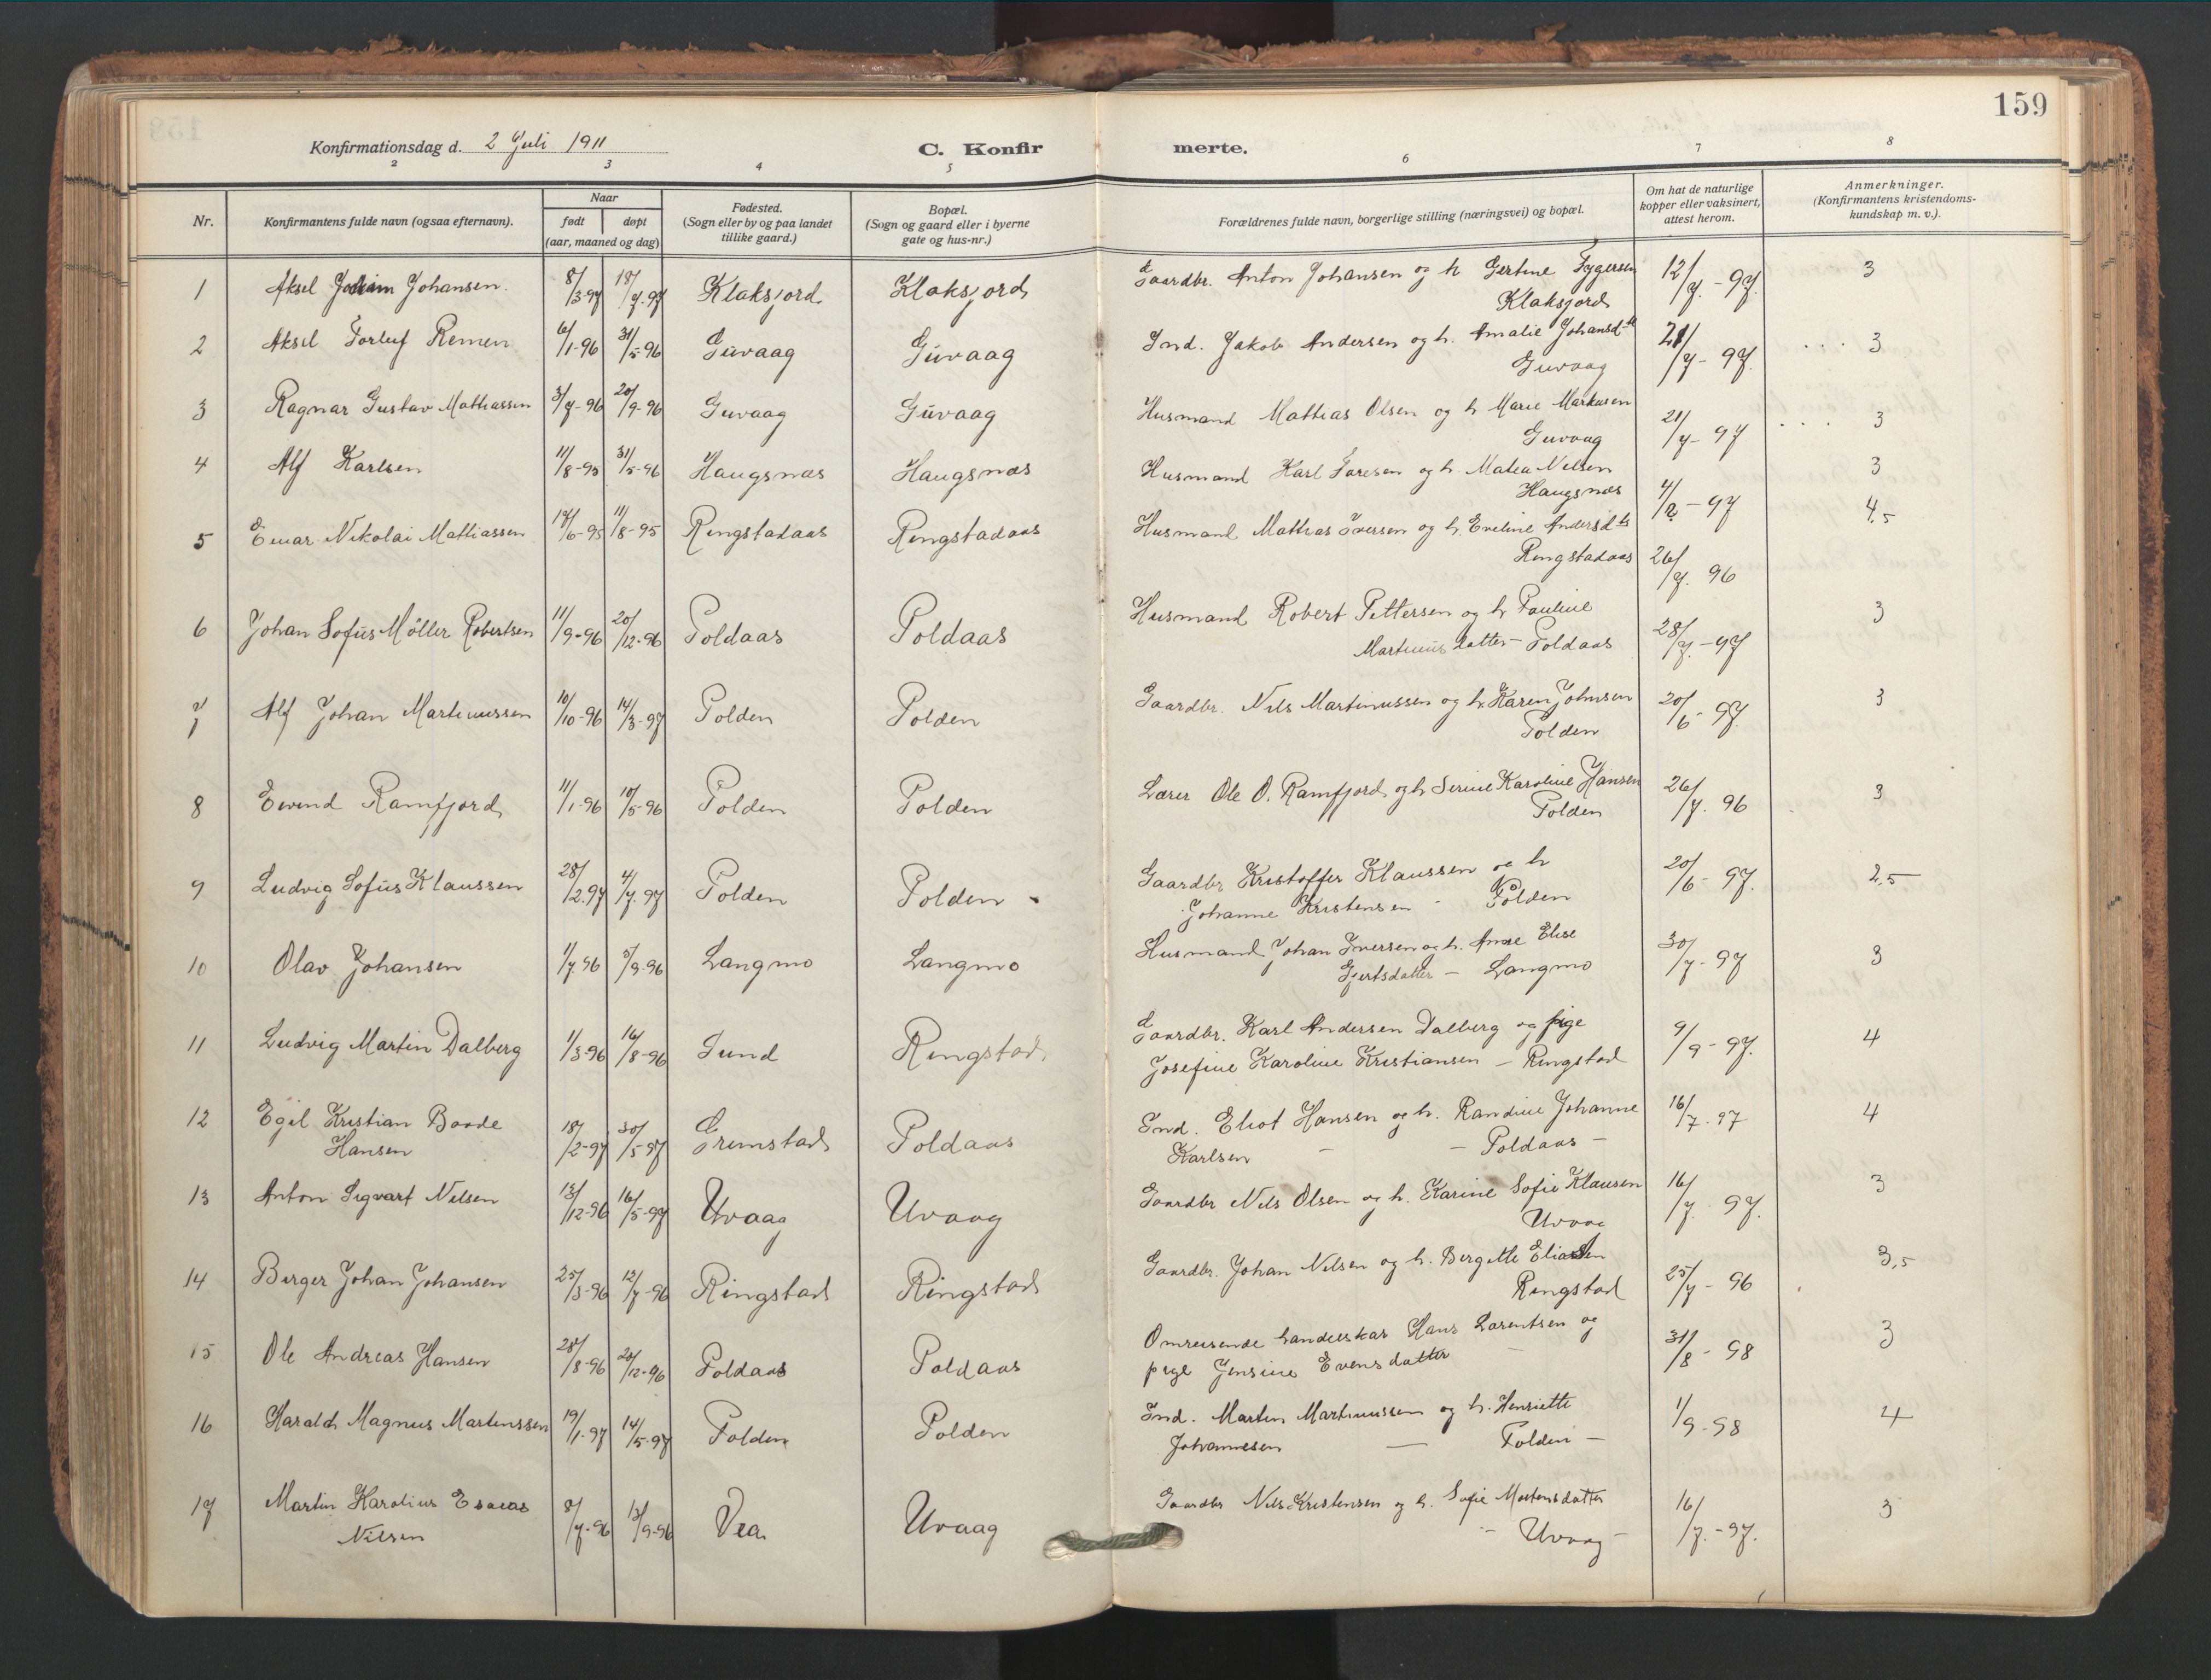 159
Konfirmationsdag d. 2 Juli 1911
C. Konfirmerte.
2 3 4 5 6 7 8
Nr.
Konfirmantens fulde navn (ogsaa efternavn).
Naar
født døpt
(aar, maaned og dag)
Fødested.
(Sogn eller by og paa landet
tillike gaard.)
Bopæl.
(Sogn og gaard eller i byerne
gate og hus-nr.)
Forældrenes fulde navn, borgerlige stilling (næringsvei) og bopæl.
Om hat de naturlige
kopper eller vaksinert,
attest herom.
Anmerkninger.
(Konfirmantens kristendoms-
kundskap m. v.).
1 Aksel Johan Johansen. 8/3-97 18/7-97 Klaksjord Klaksjord Gaardbr. Anton Johansen og h Gertine Tygersen 12/7.-97. 3
Klaksjord
2 Aksel Torluf Remen 6/1-96 31/5-96 Guvaag Guvaag Ind. Jakob Andersen og h. Amalie Johansd-tr 21/7-97. 3
Guvaag
3 Ragnar Gustav Mathiassen 3/7-96 20/9-96 Guvaag Guvaag Husmand Mathias Olsen og h Marie Markusen 21/7-97 3
Guvaag
4 Alf Karlsen 11/8-95 31/5-96 Haugsnæs Haugsnæs Husmand Karl Toresen og h. Matea Nilsen 3
Haugsnæs 4/2-97
5 Einar Nikolai Mathiassen 17/6-95 11/8-95 Ringstadaas Ringstadaas Husmand Mathias Iversen og h. Eveline Andersd-tr 4,5
Ringstadaas 26/7. 96
6 Johan Sofus Möller Robertsen 11/9-96 20/12-96 Poldaas Poldaas Husmand Robert Pettersen og h Pauline 3
Martinusdatter - Poldaas 28/7.-97
7 Alf Johan Martinussen 10/10-96 14/3-97 Polden Polden Gaardbr. Nils Martinussen og h. Karen Johnsen 20/6-97. 3
Polden
8 Eivind Ramfjord 11/1-96 10/5-96 Polden Polden Lærer Ole O. Ramfjord og h Serine Karoline Hansen 26/7. 96 3
Polden
9 Ludvig Sofus Klaussen 28/2.97 4/7.97 Polden Polden Gaardbr Kristoffer Klaussen og h 20/6-97. 2,5
Johanne Kristensen - Polden
10 Olav Johansen 1/7-96 5/9-96 Langmo Langmo Husmand Johan Iversen og h. Anne Elise 30/7-97 3
Gjertsdatter - Langmo
11 Ludvig Martin Dalberg 1/3-96 16/8-96 Sund Ringstad Gaardbr. Karl Andersen Dalberg og pige 9/9-97. 4
Josefine Karoline Kristiansen - Ringstad
12 Egil Kristian Baade 18/2-97 30/5-97 Grimstad Poldaas Ind. Eliot Hansen og h. Randine Johanne 16/7.97 4
Hansen Karlsen - - Poldaas -
13 Anton Sigvart Nilsen 13/12-96 16/5-97 Uvaag Uvaag Gaardbr Nils Olsen og h. Karine Sofie Klausen 16/7. 97. 3
Uvaag
14 Berger Johan Johansen 25/3-96 12/7-96 Ringstad Ringstad Gaardbr. Johan Nilsen og h. Bergitte Eliassen 25/7-96 3,5
Ringstad
15 Ole Andreas Hansen 28/8-96 20/12-96 Poldaas Poldaas Omreisende handelskar Hans Lorentsen og 31/8-98 3
pige Jensine Evensdatter -
16 Harald Magnus Martinssen 19/1-97 14/5-97 Polden Polden Ind. Martin Martinussen og h. Henriette 1/9-98 4
Johannesen - Polden -
17 Martin Karolius Esaias 8/7-96 13/9-96 Vea Uvaag Gaardbr Nils Kristensen og h. Sofie Mortensdatter 16/7.-97. 3
Nilsen - Uvaag -